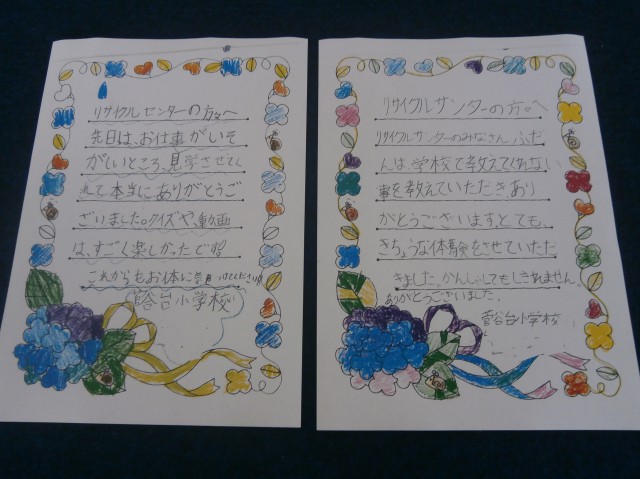 リサイクルセンターの方々へ
先日は、お仕事がいそ
がしいところ、見学させてく
れて、本当にありがとうご
ざいました。クイズや、動画
は、すごく楽しかったです。
これからもお体に気を
菅谷台小学校
リサイクルサンターの方々へ
リサイクルサンターのみなさん、ふだ
んは、学校で教えてくれない
事を教えていただきあり
がとうございます。とても、
きちょうな体験をさせていただ
きました。かんしゃしてもしきれません。
ありがとうございました。
菅谷台小学校